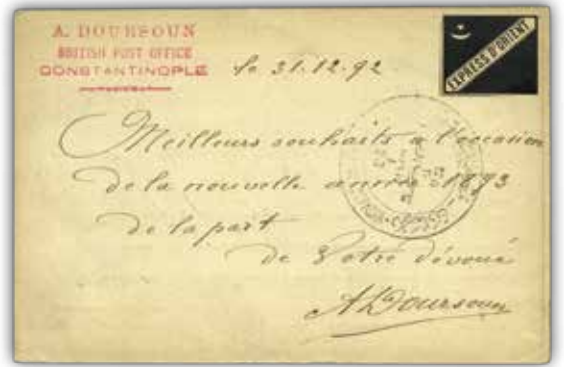 A. DOURSOUN
BRITISH POST OFFICE
CONSTANTINOPLE
le 31.12.92
EXPRESS D'ORIENT
Meilleurs souhaits à l'occasion
de la nouvelle année 1893
de la part
de Votre dévoué
A Doursoun